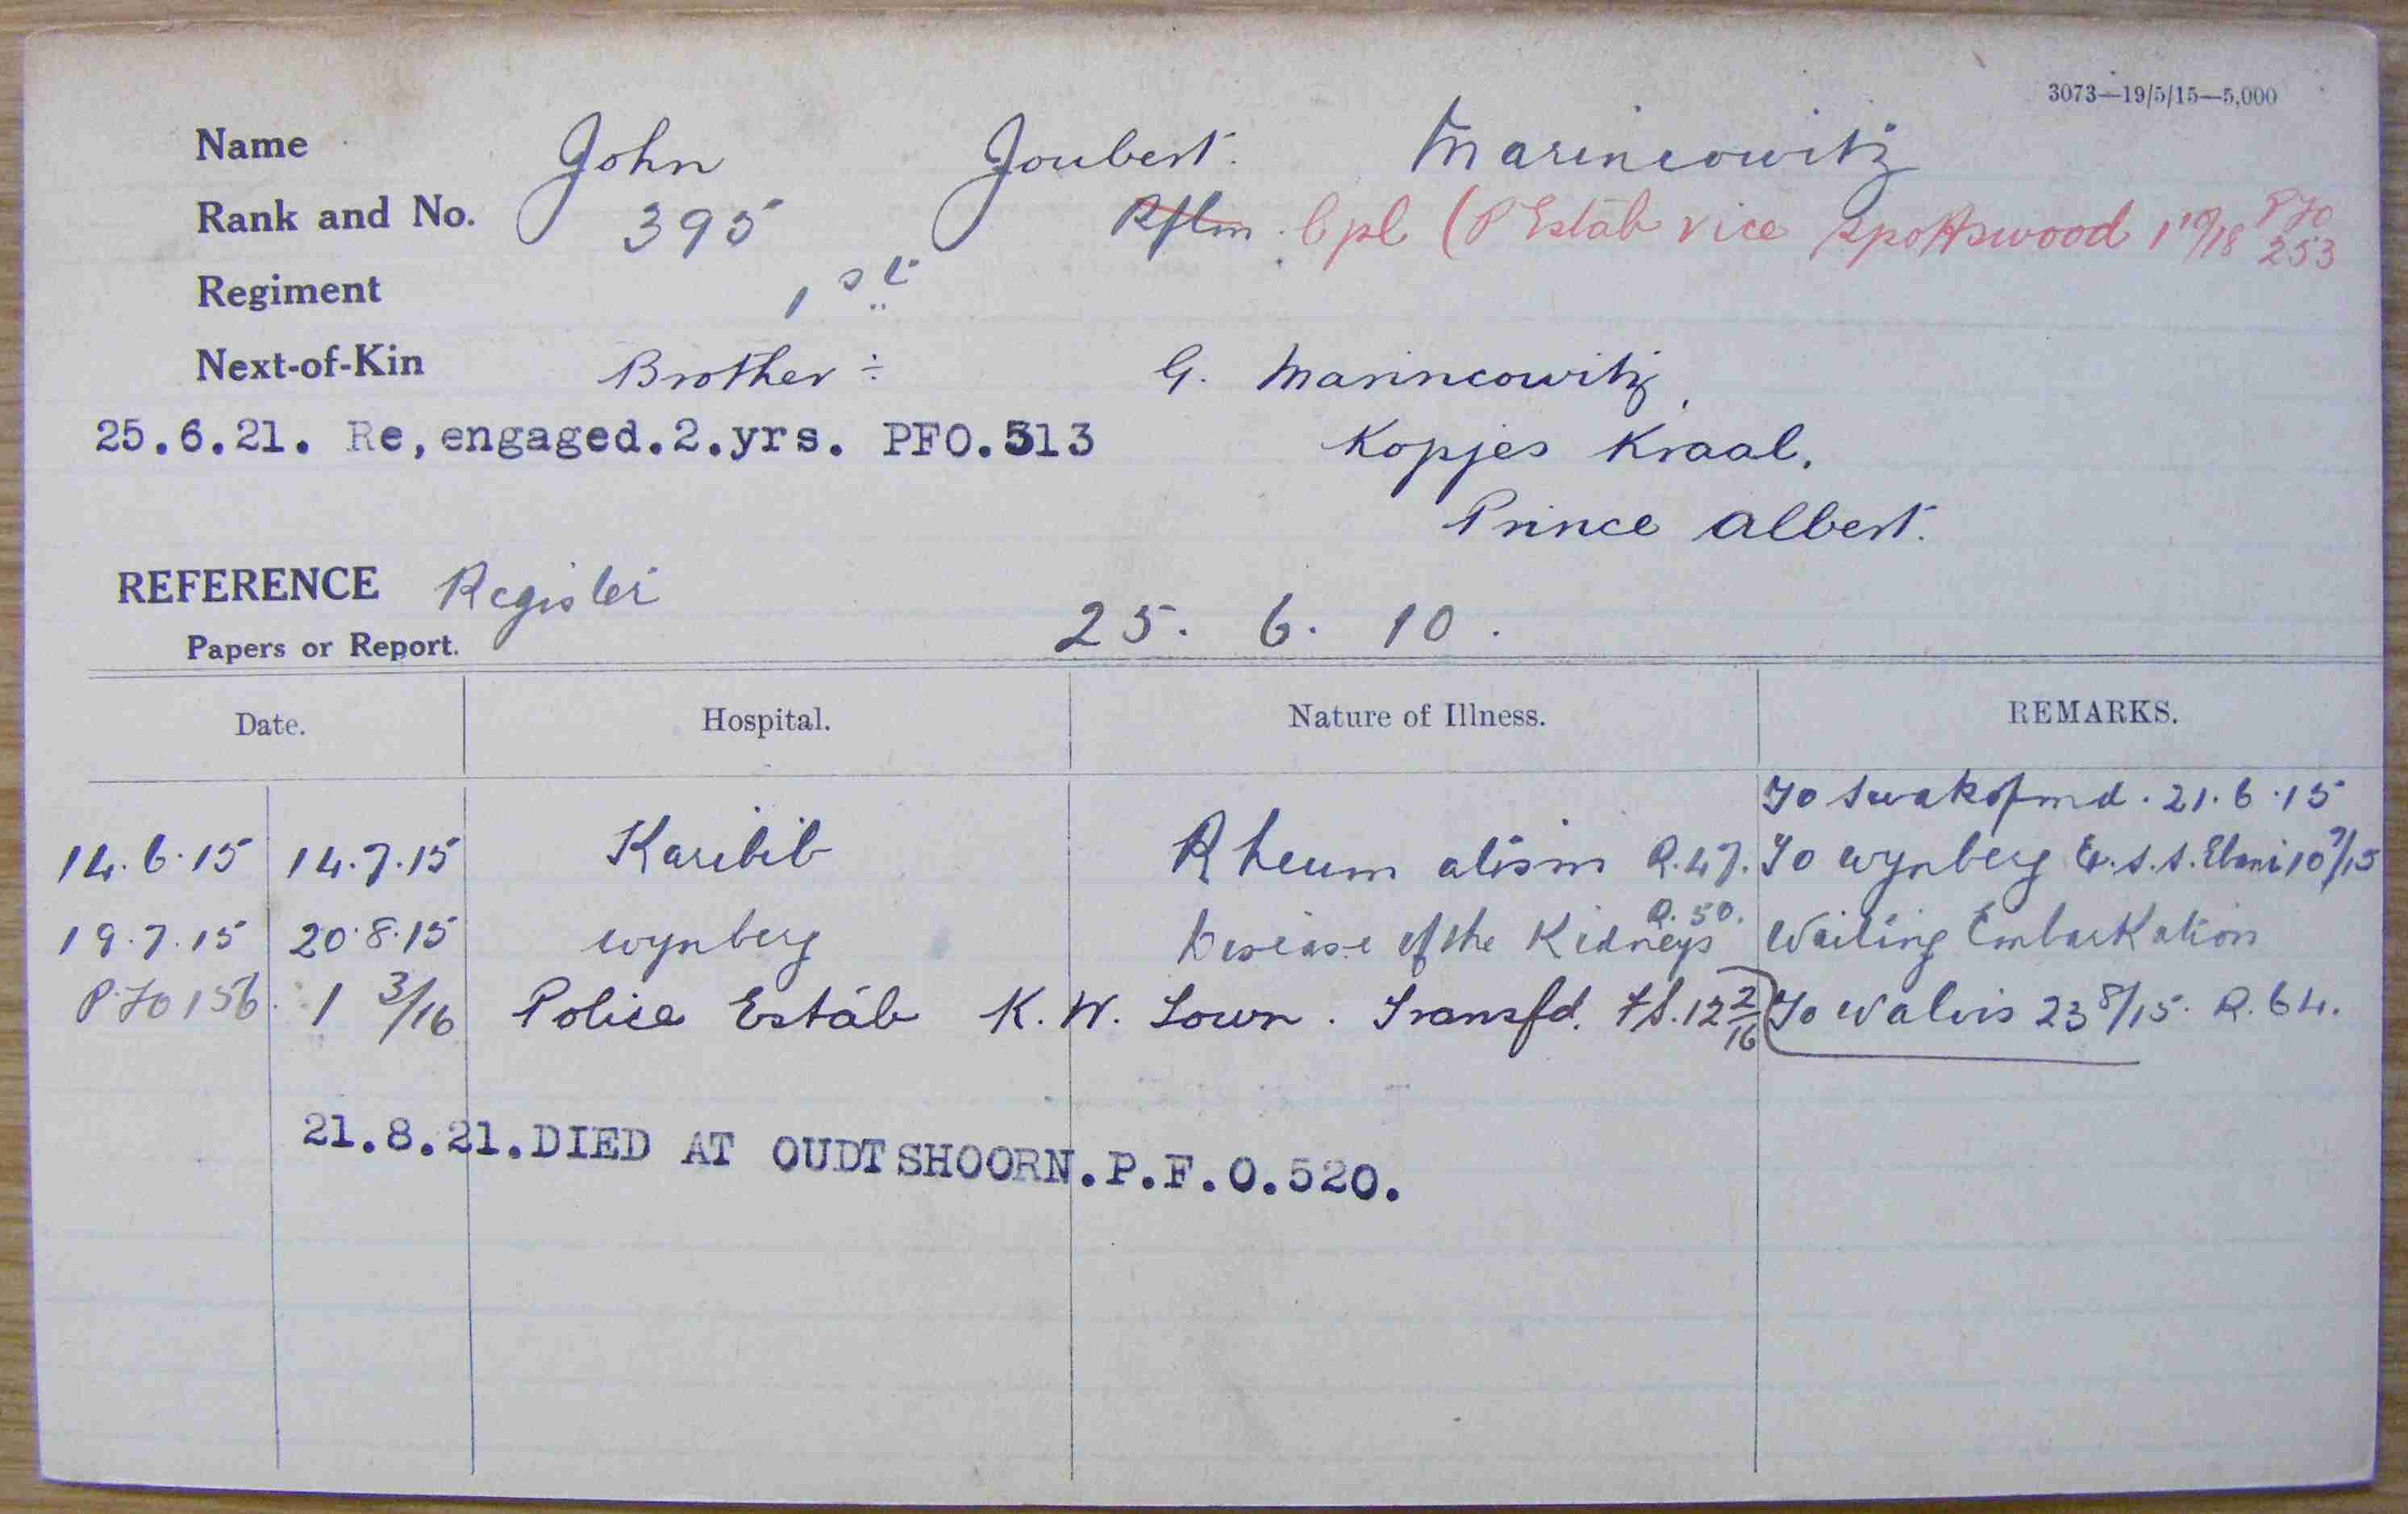 3073—19/5/15—5,000
Name John Joubert. Marincowitz
Rank and No. 395 Rflm. Cpl (P Estab vice Spottswood 1 10/18 PFO 253
Regiment 1st
Next-of-Kin Brother ÷ G. Marincowitz,
25.6.21. Re,engaged.2.yrs. PFO.513 Kopjes Kraal,
Prince Albert.
REFERENCE Register
Papers or Report. 25. 6. 10.
Date. Hospital. Nature of Illness. REMARKS.
To Swakopmd. 21.6.15
14.6.15 14.7.15 Karibib Rheumatism R.47. To Wynberg Ex. S.S. Ebani 10 7/15
19.7.15 20.8.15 Wynberg Disease of the Kidneys R.50. Waiting Embarkation
PFO 156. 1 3/16 Police Estab K.W. Town. Transfd. FS.12 2/16 To Walvis 23 8/15. R.64.
21.8.21.DIED AT OUDTSHOORN.P.F.O.520.